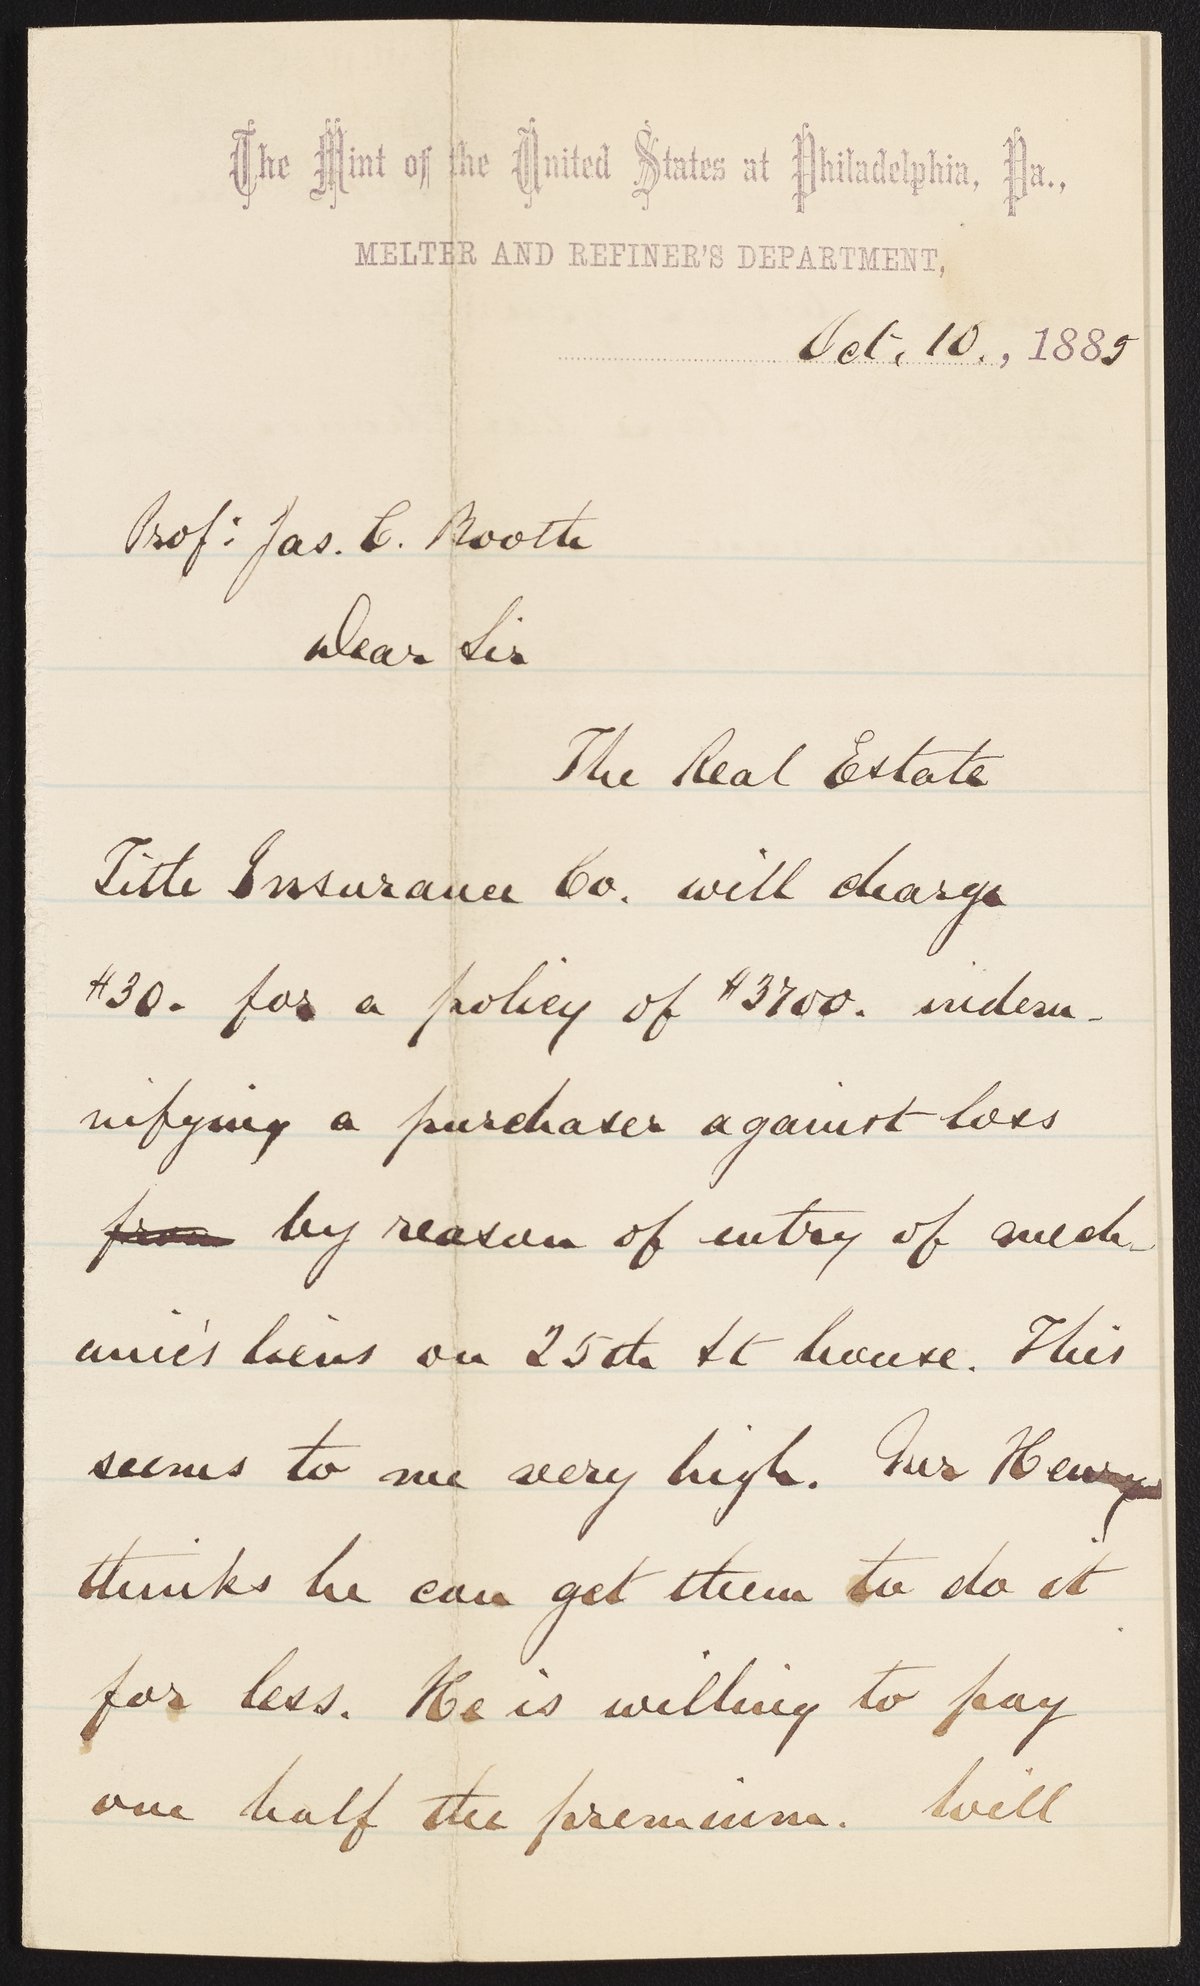 The Mint of the United States at Philadelphia, Pa.,
MELTER AND REFINER'S DEPARTMENT,
Oct. 10., 1885
Prof: Jas. C. Booth
Dear Sir
The Real Estate
Title Insurance Co. will charge
$30. for a policy of $3700. indem-
nifying a purchaser against loss
from by reason of entry of mech-
anic's liens on 25th St house. This
seems to me very high. Mr Henry
thinks he can get them to do it
for less. He is willing to pay
one half the premium. Will